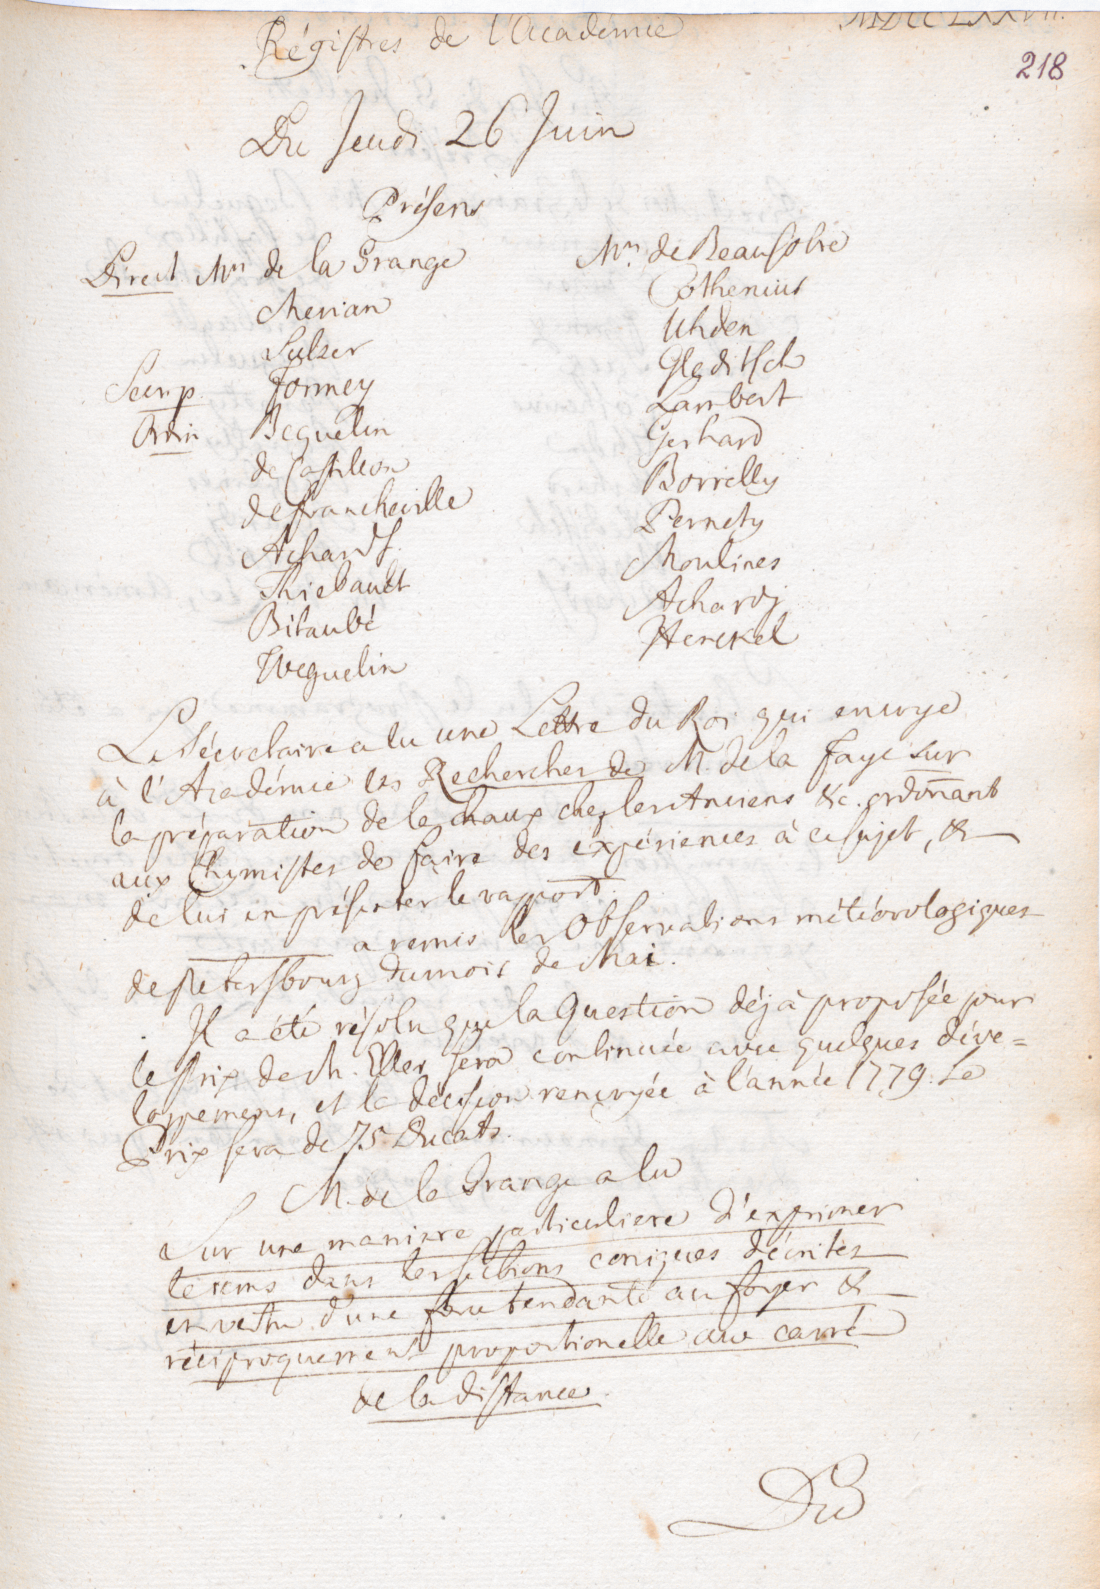 Régistres de l'Academie
MDCCLXXVII.
218
Du Jeudi 26 Juin
Présens
Direct Mrs de la Grange
Merian
Sulzer
Secr. p. Formey
Ordin Beguelin
de Castillon
de Francheville
Achard f.
Thiebault
Bitaubé
Weguelin
Mrs de Beausobre
Cothenius
Uhden
Gleditsch
Lambert
Gerhard
Borrelly
Pernety
Moulines
Achard j
Henckel
Le Sécretaire a lu une Lettre du Roi qui envoye
à l'Académie les Recherches de M. de la Faye sur
la préparation de la chaux chez les Anciens &c. ordonant
aux Chymistes de faire des expériences à ce sujet, &
de lui en présenter le rapport.
a remis les Observations météorologiques
de Petersbourg du mois de Mai.
Il a été résolu que la Question déjà proposée pour
le Prix de M. Eller sera continuée avec quelques déve=
loppemens, et la décision renvoyée à l'année 1779. Le
Prix sera de 75 Ducats.
M. de la Grange a lu
Sur une maniere particuliere d'exprimer
le tems dans les sections coniques décrites
en vertu d'une force tendante au foyer &
réciproquement proportionelle au carré
de la distance.